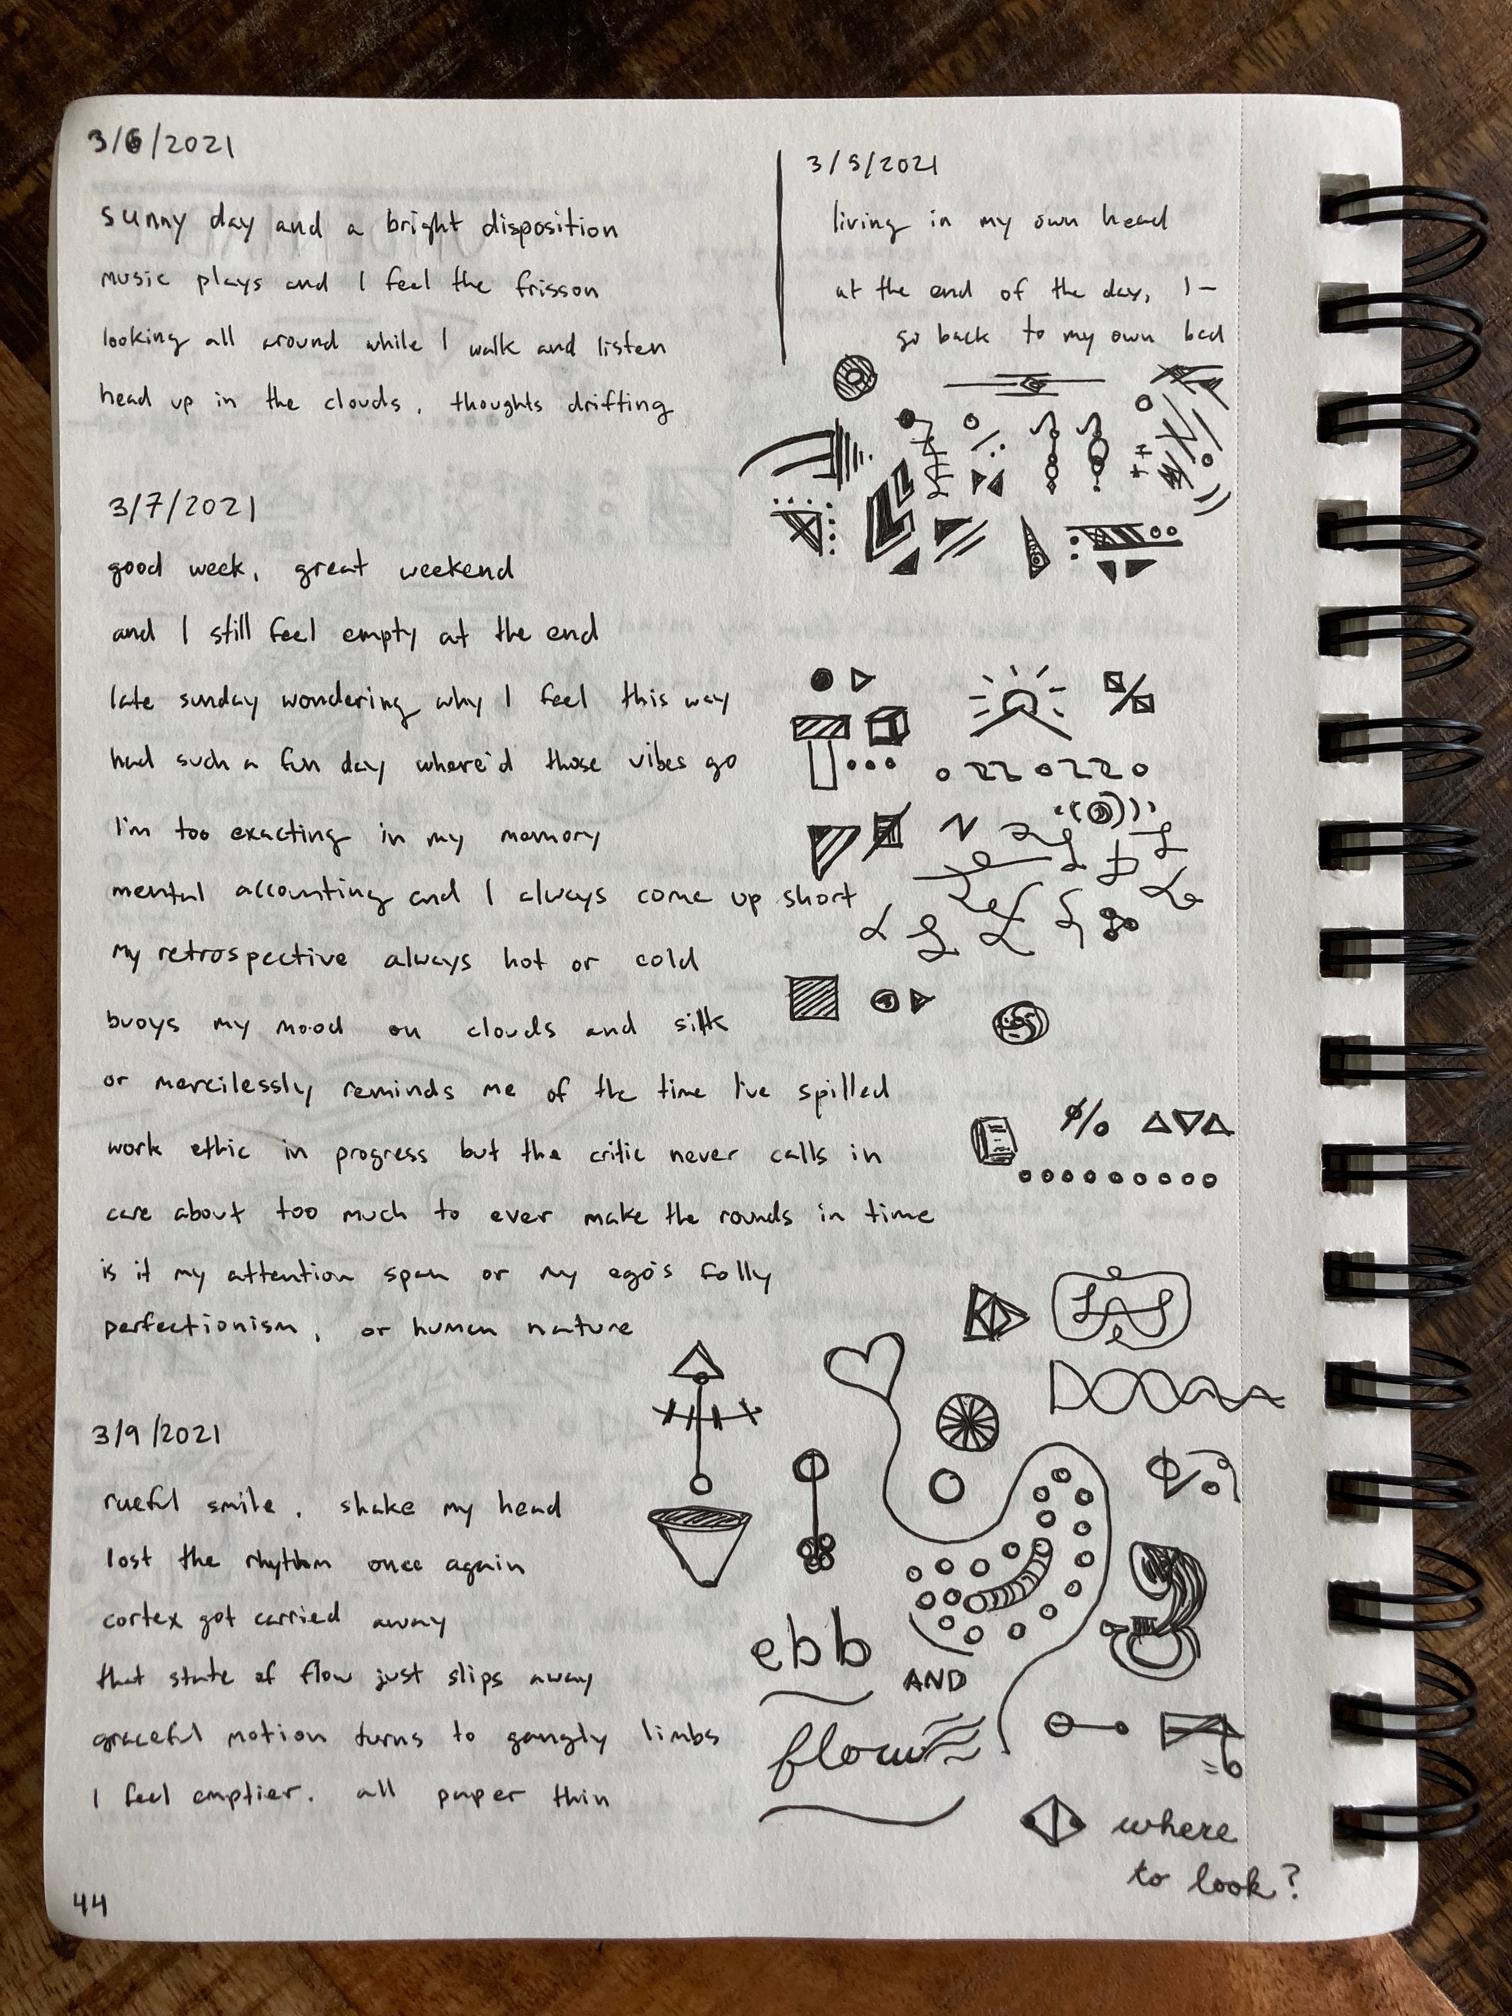 3/6/2021
sunny day and a bright disposition
music plays and I feel the frisson
looking all around while I walk and listen
head up in the clouds, thoughts drifting
3/5/2021
living in my own head
at the end of the day, I—
go back to my own bed
3/7/2021
good week, great weekend
and I still feel empty at the end
late sunday wondering why I feel this way
had such a fun day where'd those vibes go
I'm too exacting in my memory
mental accounting and I always come up short
my retrospective always hot or cold
buoys my mood on clouds and silk
or mercilessly reminds me of the time I've spilled
work ethic in progress but the critic never calls in
care about too much to ever make the rounds in time
is it my attention span or my ego's folly
perfectionism, or human nature
3/9/2021
rueful smile, shake my head
lost the rhythm once again
cortex got carried away
that state of flow just slips away
graceful motion turns to gangly limbs
I feel emptier. all paper thin
ebb
AND
flow
where
to look?
44